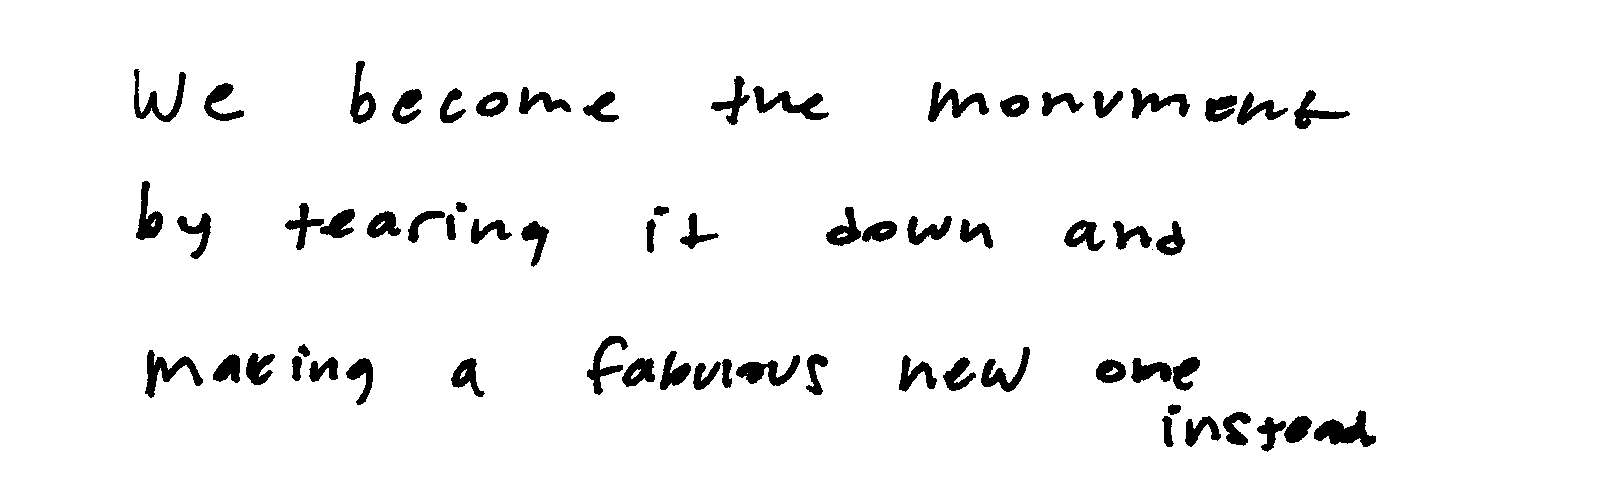 We become the monument
by tearing it down and
making a fabulous new one
instead